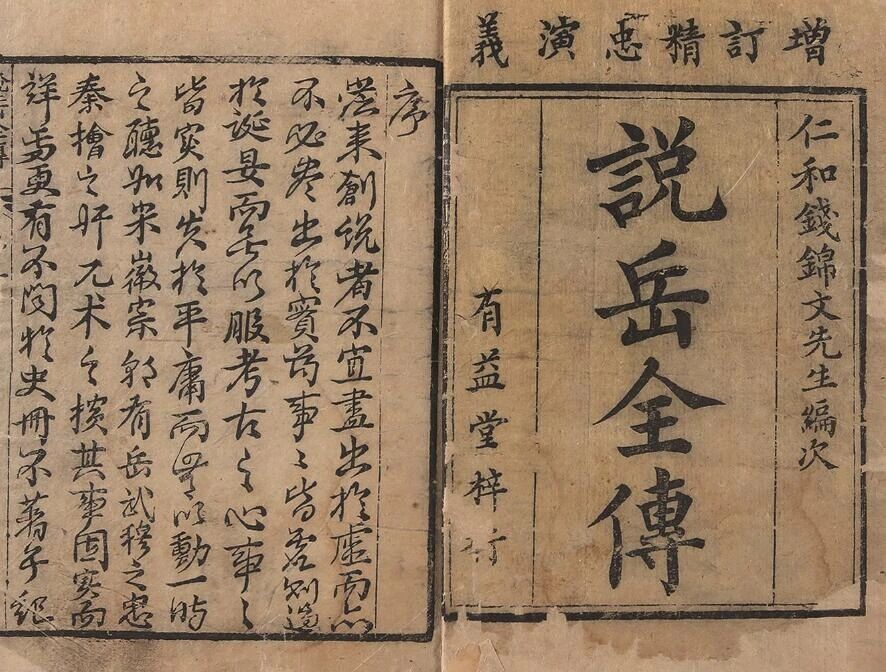 增訂精忠演義
仁和錢錦文先生編次
說岳全傳
有益堂梓行
序
從來創說者不宜盡出於虛而亦
不必盡出於實苟事〻皆虛則過
於誕妄而無以服考古之心事〻
皆實則失於平庸而無以動一時
之聽如宋徽宗朝有岳武穆之忠
秦檜之奸兀术之橫其事固實而
詳焉更有不聞於史冊不著於紀